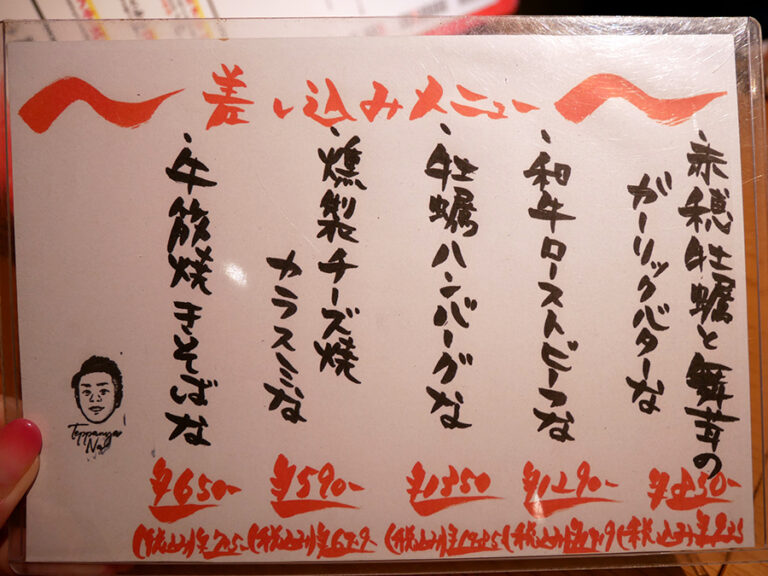 差し込みメニュー
・赤穂牡蠣と舞茸の
ガーリックバターな
¥850-
(税込み¥935
・和牛ローストビーフな
¥1290-
(税込み¥1419
・牡蠣ハンバーグな
¥1350
(税込み¥1485
・燻製チーズ焼
カラスミな
¥590-
(税込み¥649-
・牛筋焼きそばな
¥650-
(税込み¥715-
Teppanya
Na